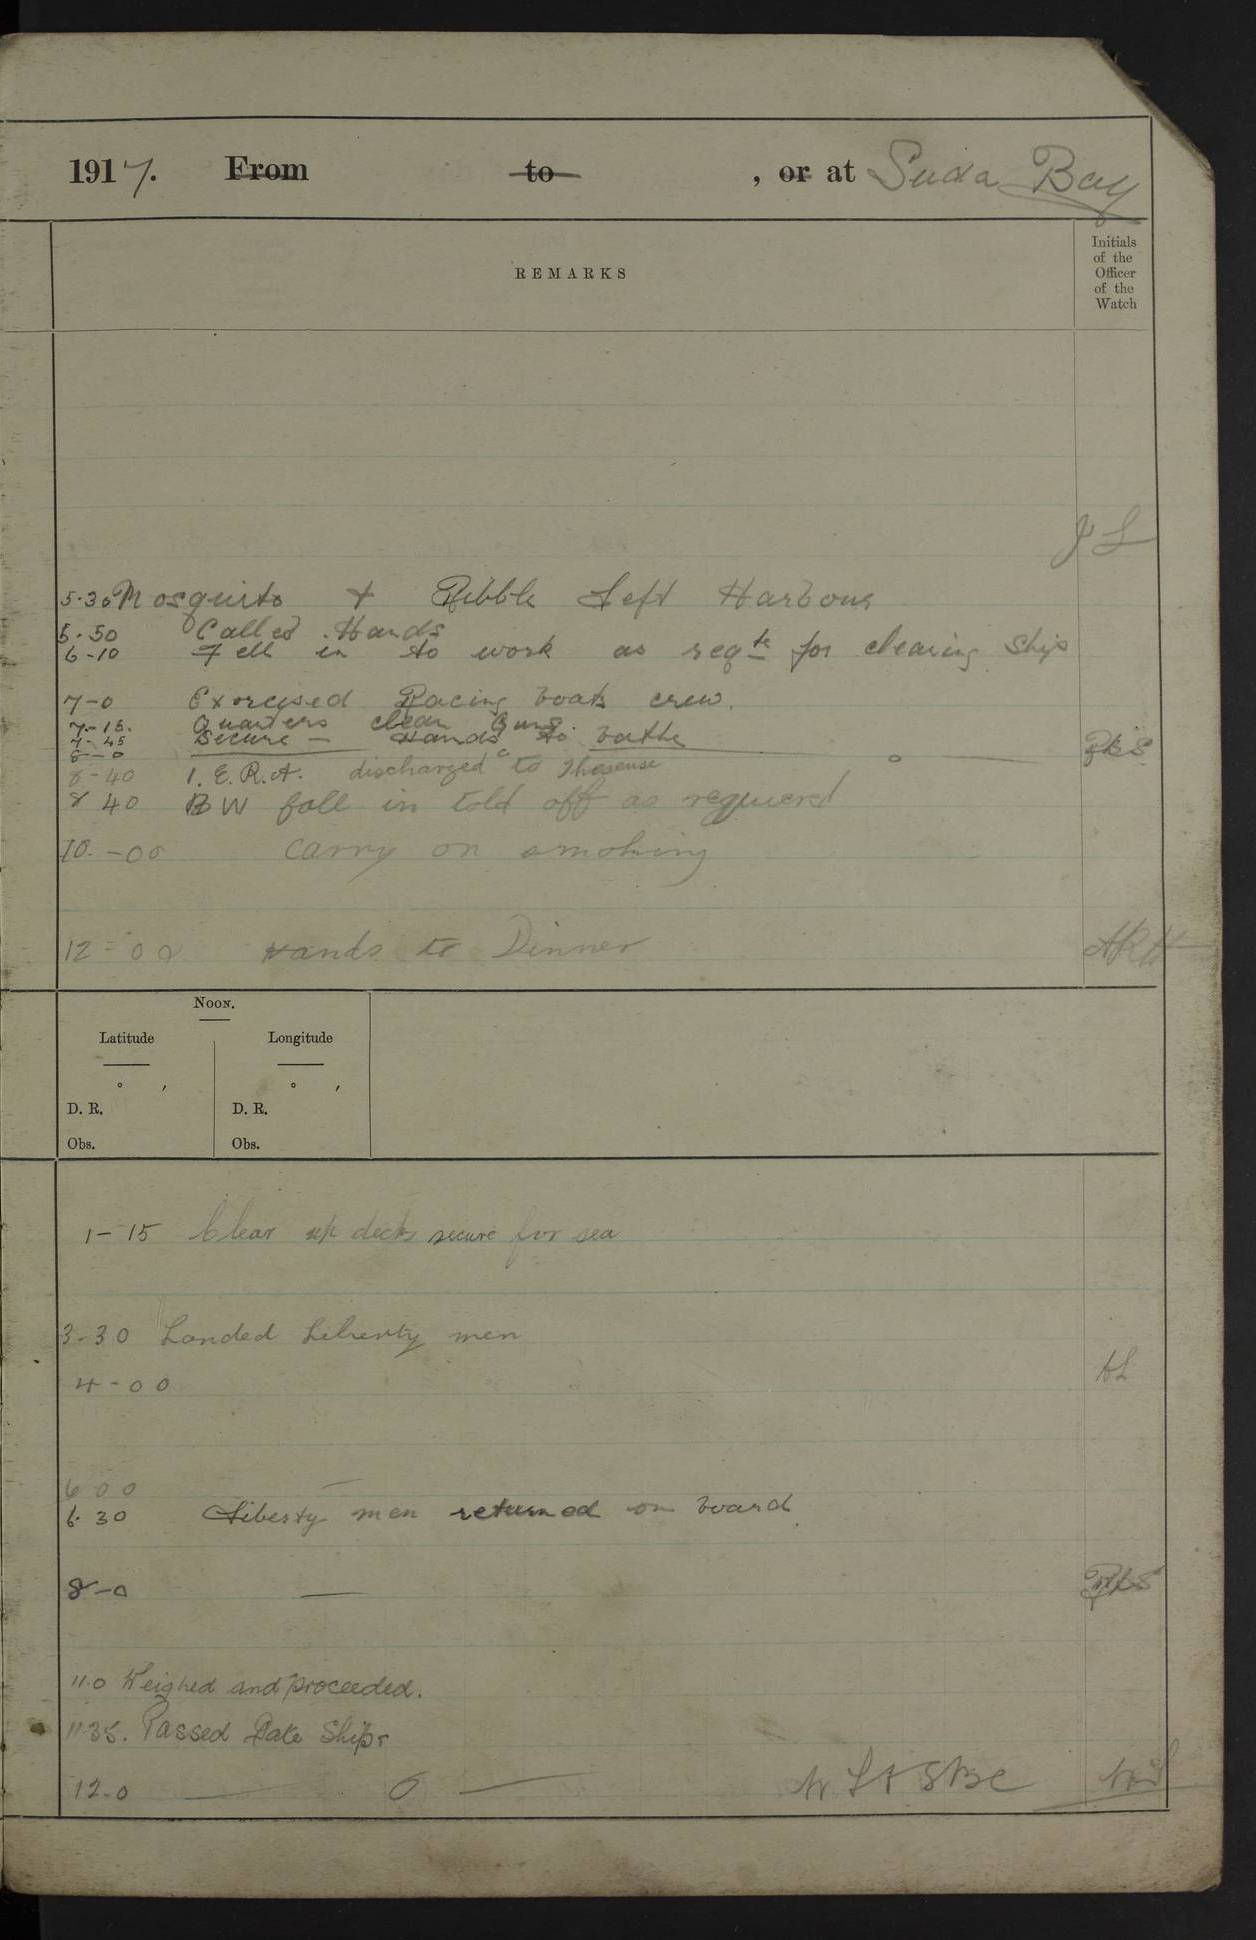 1917. From to , or at Suda Bay
REMARKS
Initials
of the
Officer
of the
Watch
J L
5.30 Mosquito + Ribble Left Harbour
5.50 Called Hands
6-10 Fell in to work as reqte for clearing Ship
7-0 Exorcised Racing boats crew.
7-15. Quarters clean Guns.
7-45 Secure - Hands to bathe
8-0 o
8-40 1. E.R.A. discharged to Theseuse
8 40 BW fall in told off as requierd
10.-00 Carry on smoking
12-00 Hands to Dinner ARH
NOON.
Latitude Longitude
° ′ ° ′
D. R. D. R.
Obs. Obs.
1-15 Clear up decks secure for sea
3-30 Landed Liberty men
4-00
6 00 —
6.30 Liberty men returned on board
8-0 —
11.0 Weighed and proceeded.
11.35. Passed Gate Ships
12.0 — 0 —